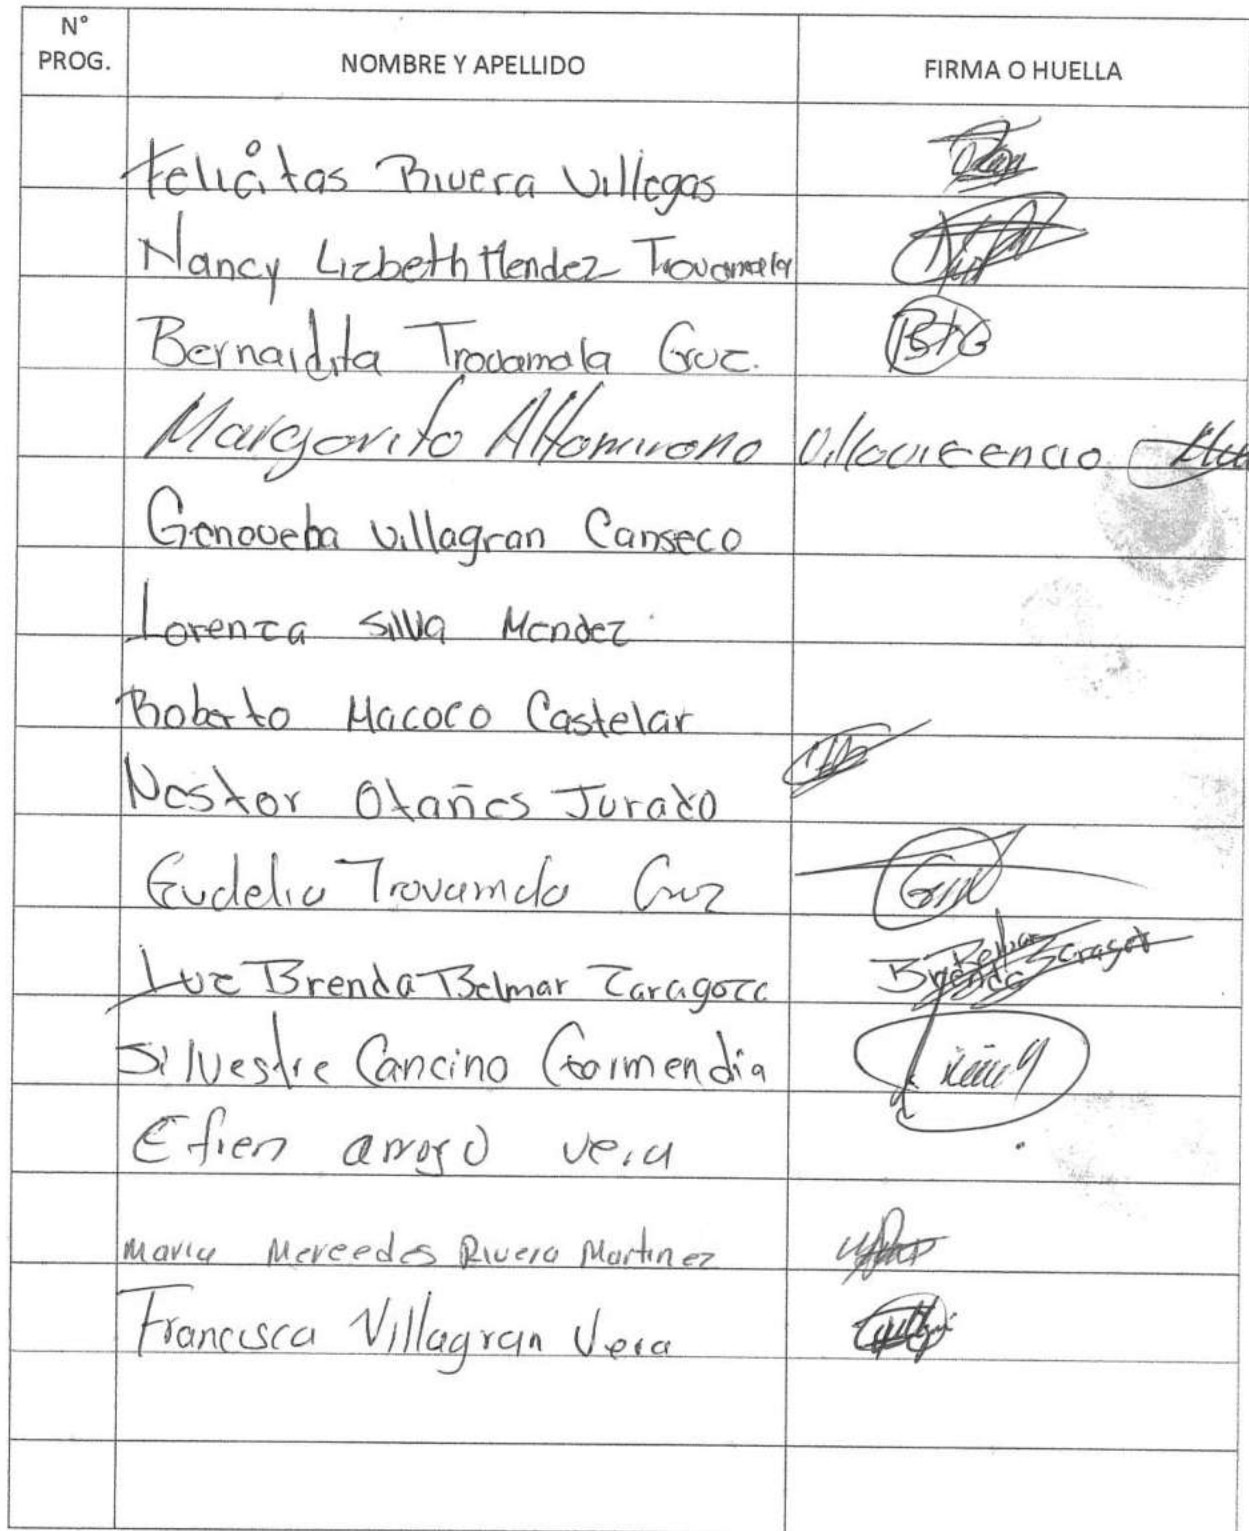 N° PROG. NOMBRE Y APELLIDO FIRMA O HUELLA
Felicitas Rivera Villegas
Nancy Lizbeth Mendez Trovamala
Bernardita Trovamala Cruz. BTC
Margarito Altamirano Villavicencio
Genoveba Villagran Canseco
Lorenza Silva Mendez
Roberto Macoco Castelar
Nestor Otañes Jurado
Eudelia Trovamala Cruz
Luz Brenda Belmar Zaragoza Brenda Belmar Zaragoza
Silvestre Cancino Garmendia
Efren arroyo vera
Maria Mercedes Rivera Martinez
Francisca Villagran Vera